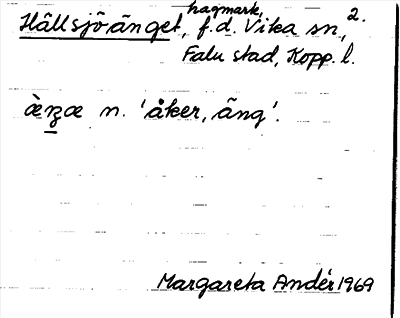 Hållsjöänget, hagmark, f.d. Vika sn, 2.
Falu stad, Kopp. l.
æ̀ɳæ n. 'åker, äng'.
Margareta Andér 1969